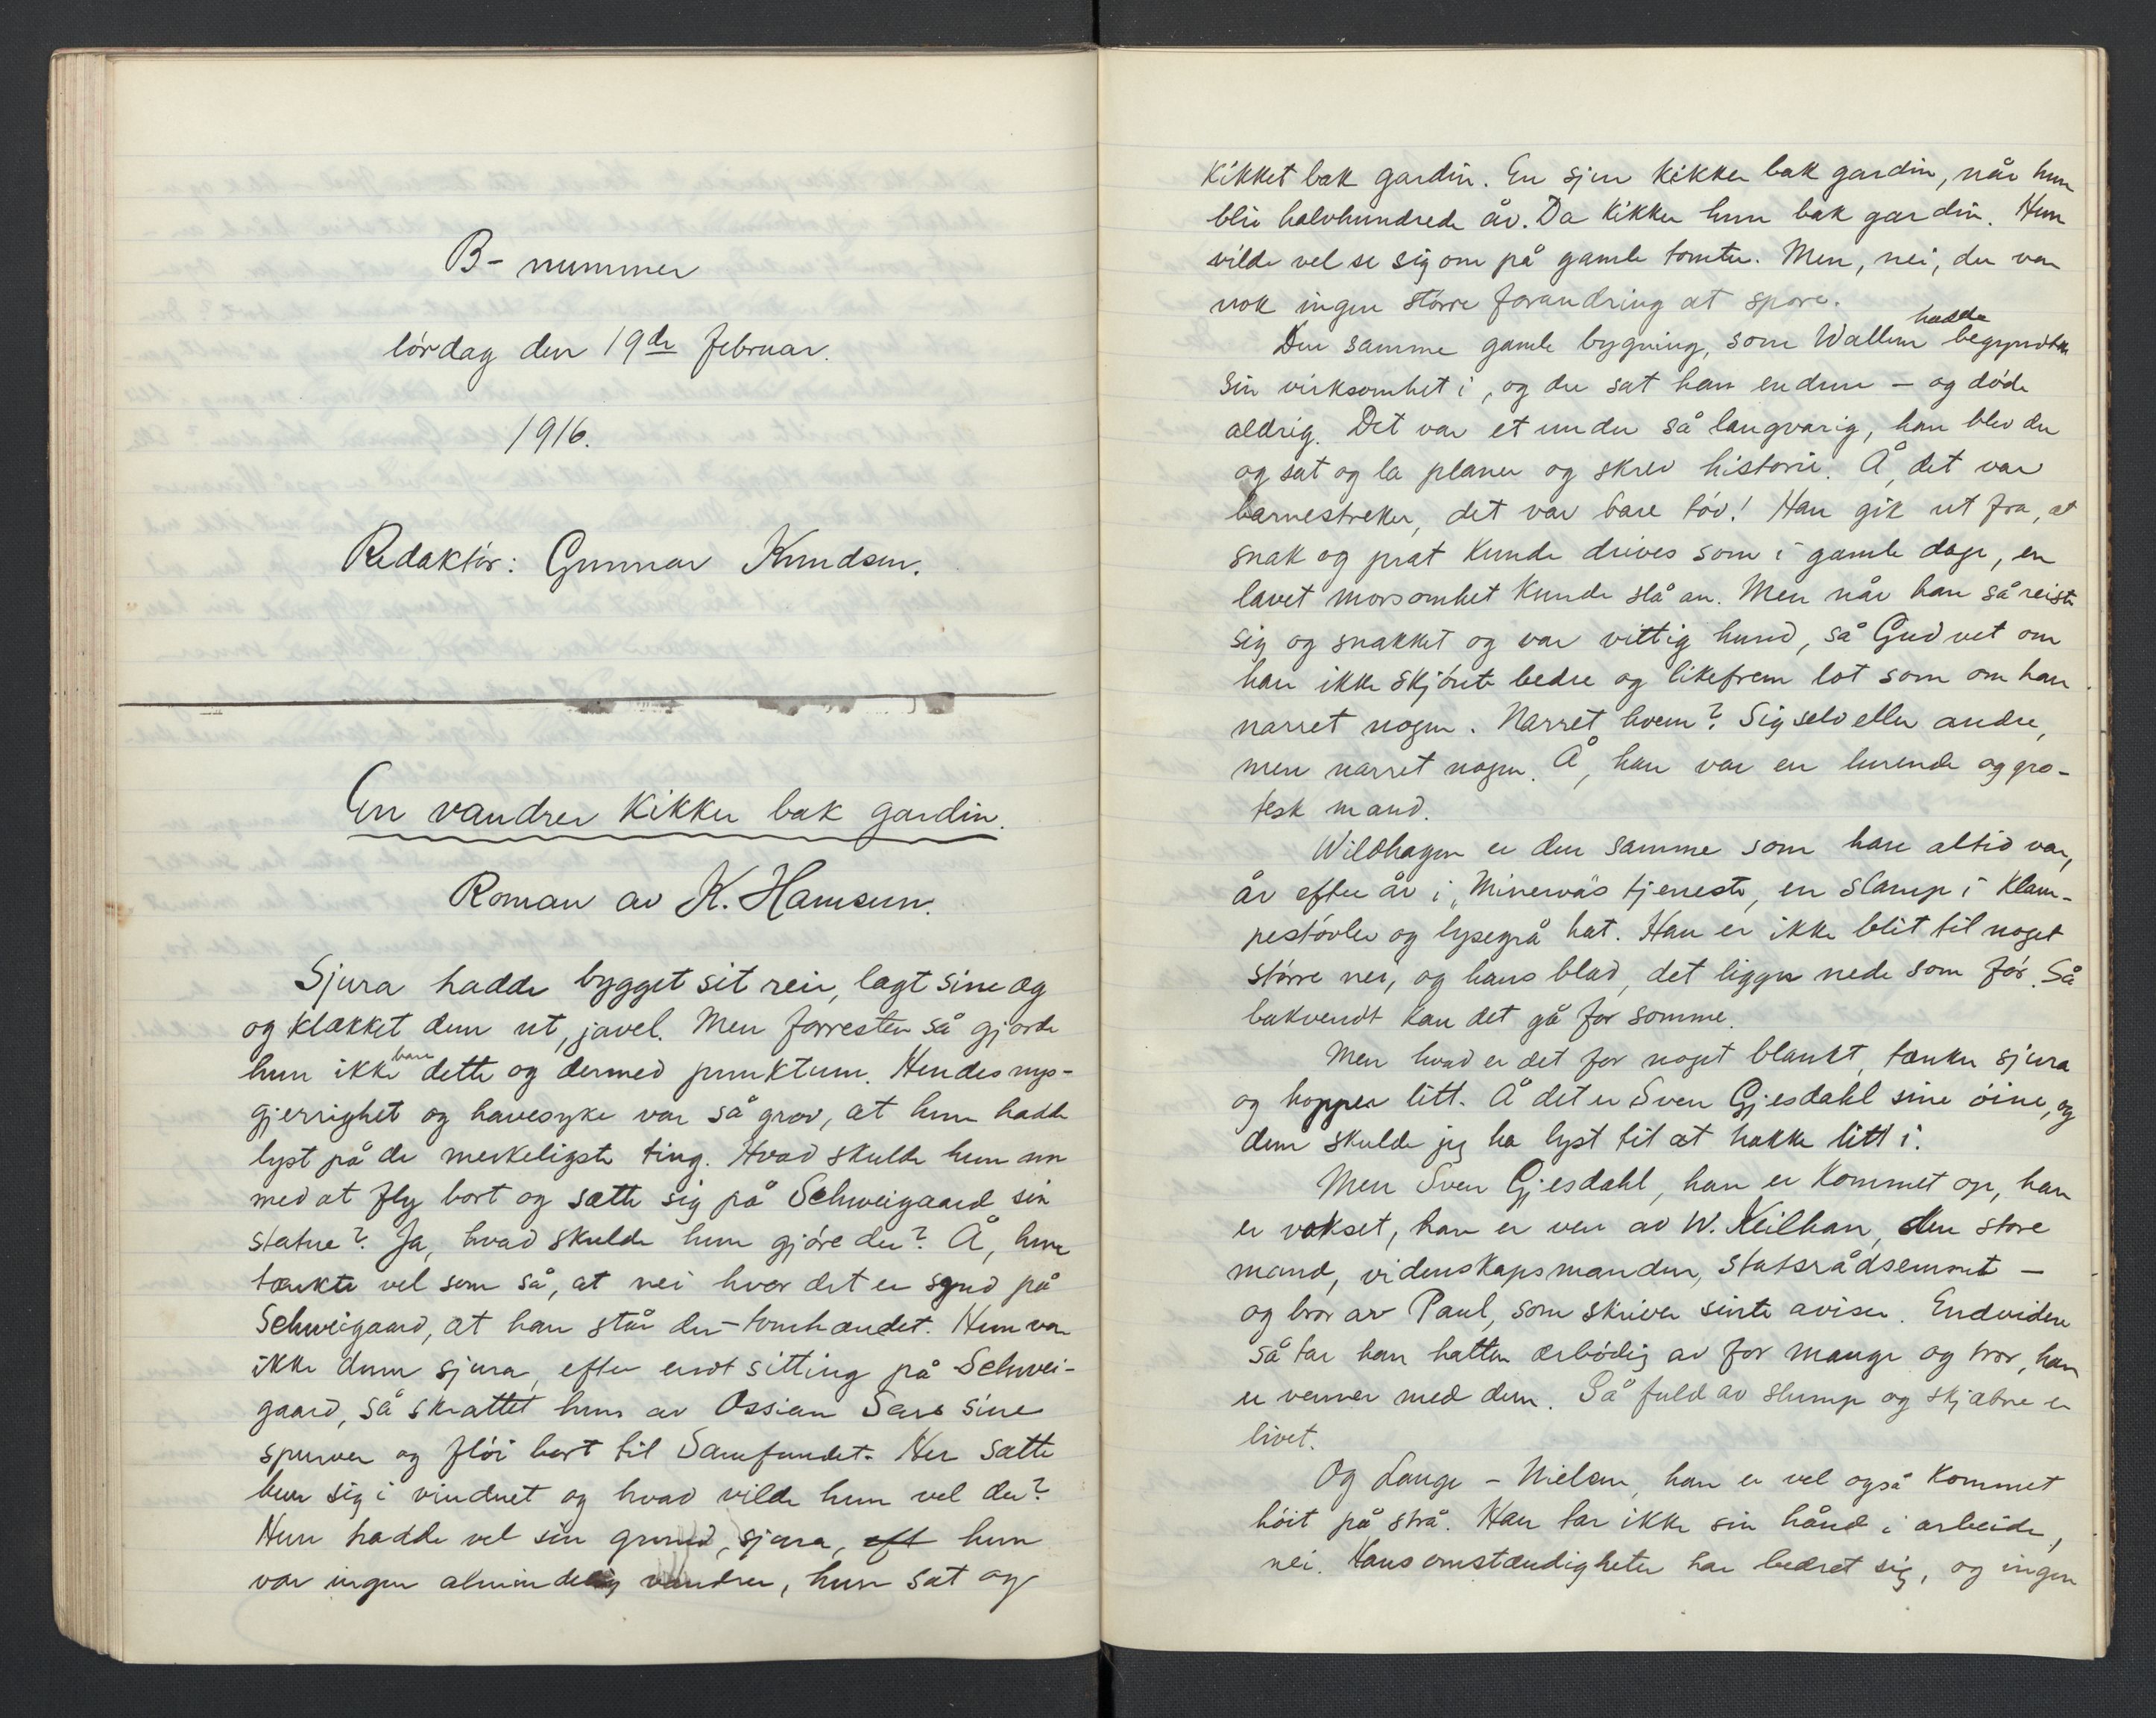 B- nummer
lørdag den 19de februar.
1916.
Redaktør: Gunnar Knudsen.
En vandrer kikker bak gardin.
Roman av K. Hamsun.
Sjura hadde bygget sit reir, lagt sine æg
og klækket dem ut, javel. Men forresten så gjorde
hun ikke bare dette og dermed punktum. Hendes nys-
gjerrighet og havesyke var så grov, at hun hadde
lyst på de merkeligste ting. Hvad skulde hun nu
med at fly bort og sætte sig på Schweigaard sin
statue? Ja, hvad skulde hun gjøre der? Å, hun
tænkte vel som så, at nei hvor det er synd på
Schweigaard, at han står der tomhændet. Hun var
ikke dum sjura, efter endt sitting på Schwei-
gaard, så skrattet hun av Ossian Sars sine
spurver og fløi bort til Samfundet. Her satte
hun sig i vinduet og hvad vilde hun vel der?
Hun hadde vel sin grund, sjura, eft hun
var ingen almindelig vandrer, hun sat og
kikket bak gardin. En sjur kikker bak gardin, når hun
blir halvhundrede år. Da kikker hun bak gardin. Hun
vilde vel se sig om på gamle tomter. Men, nei, der var
nok ingen større forandring at spore.
Den samme gamle bygning, som Wallem hadde begyndt
sin virksomhet i, og der sat han endnu - og døde
aldrig. Det var et under så langvarig, han blev der
og sat og la planer og skrev historie. Å, det var
barnestreker, det var bare tøv! Han gik ut fra, at
snak og prat kunde drives som i gamle dage, en
lavet morsomhet kunde slå an. Men når han så reiste
sig og snakket og var vittig hund, så Gud vet om
han ikke skjønte bedre og likefrem lot som om han
narret nogen. Narret hvem? Sig selv eller andre,
men narret nogen. Å, han var en lurende og gro-
tesk mand.
Wildhagen er den samme som han altid var,
år efter år i "Minerva's tjeneste, en slamp i klam-
pestøvler og lysegrå hat. Han er ikke blit til noget
større nei, og hans blad, det ligger nede som før. Så
bakvendt kan det gå for somme.
Men hvad er det for noget blankt, tænker sjura
og hopper litt. Å det er Sven Gjesdahl sine øine, og
dem skulde jeg ha lyst til at hakke litt i.
Men Sven Gjesdahl, han er kommet op, han
er vokset, han er ven av W. Keilhau, den store
mand, videnskapsmanden, statsrådsemnet -
og bror av Paul, som skriver sinte aviser. Endvidere
så tar han hatten ærbødig av for mange og tror, han
er venner med dem. Så fuld av slump og skjæbne er
livet.
Og Lange - Nielsen, han er vel også kommet
høit på strå. Han tar ikke sin hånd i arbeide,
nei. Hans omstændigheter har bedret sig, og ingen